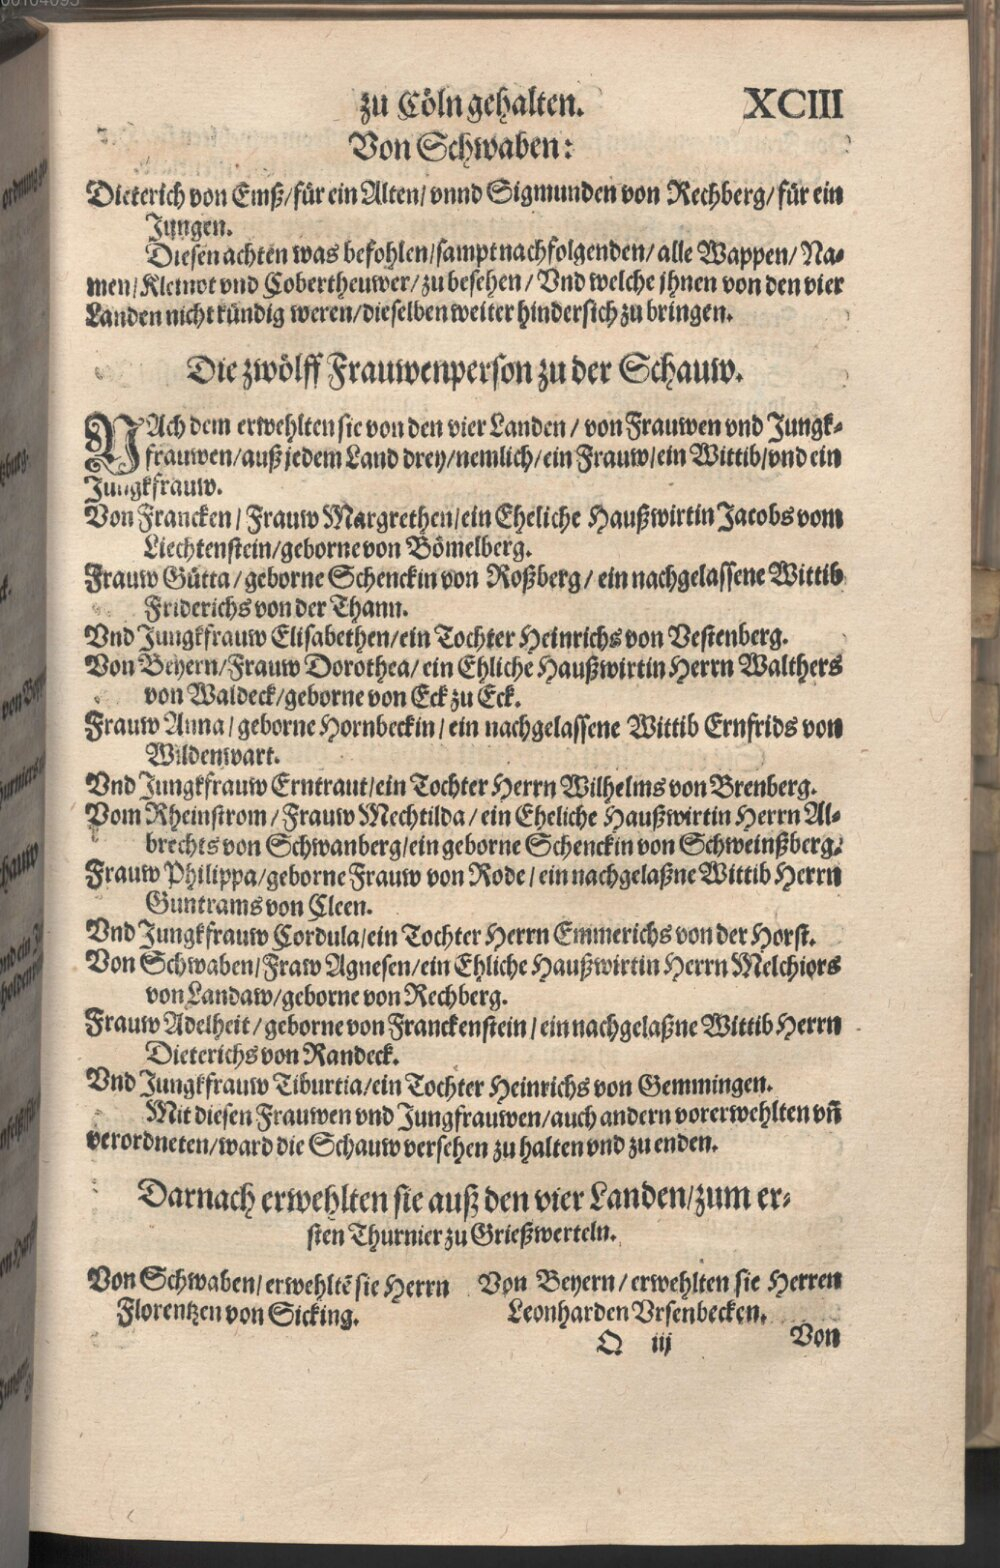 zu Cöln gehalten. XCIII
Von Schwaben:
Dieterich von Emß/für ein Alten/ vnnd Sigmunden von Rechberg/ für ein
Jungen.
Diesen achten was befohlen/sampt nachfolgenden/ alle Wappen/ Na-
men/ Kleinot vnd Cobertheuwer/ zu besehen/ Vnd welche jhnen von den vier
Landen nicht kündig weren/dieselben weiter hindersich zu bringen.
Die zwölff Frauwenperson zu der Schauw.
NAch dem erwehlten sie von den vier Landen / von Frauwen vnd Jungk-
frauwen/auß jedem Land drey/nemlich/ein Frauw/ein Wittib/vnd ein
Jungkfrauw.
Von Francken / Frauw Margrethen/ein Eheliche Haußwirtin Jacobs vom
Liechtenstein/geborne von Bömelberg.
Frauw Gütta / geborne Schenckin von Roßberg / ein nachgelassene Wittib
Friderichs von der Thann.
Vnd Jungkfrauw Elisabethen/ein Tochter Heinrichs von Vestenberg.
Von Beyern/Frauw Dorothea/ ein Ehliche Haußwirtin Herrn Walthers
von Waldeck/geborne von Eck zu Eck.
Frauw Anna / geborne Hornbeckin / ein nachgelassene Wittib Ernfrids von
Wildenwart.
Vnd Jungkfrauw Erntraut/ein Tochter Herrn Wilhelms von Brenberg.
Vom Rheinstrom / Frauw Mechtilda / ein Eheliche Haußwirtin Herrn Al-
brechts von Schwanberg/ein geborne Schenckin von Schweinßberg.
Frauw Philippa/geborne Frauw von Rode / ein nachgelaßne Wittib Herrn
Guntrams von Cleen.
Vnd Jungkfrauw Cordula/ein Tochter Herrn Emmerichs von der Horst.
Von Schwaben/Fraw Agnesen/ein Ehliche Haußwirtin Herrn Melchiors
von Landaw/geborne von Rechberg.
Frauw Adelheit / geborne von Franckenstein / ein nachgelaßne Wittib Herrn
Dieterichs von Randeck.
Vnd Jungkfrauw Tiburtia/ein Tochter Heinrichs von Gemmingen.
Mit diesen Frauwen vnd Jungfrauwen/auch andern vorerwehlten vñ
verordneten/ward die Schauw versehen zu halten vnd zu enden.
Darnach erwehlten sie auß den vier Landen/zum er-
sten Thurnier zu Grießwerteln.
Von Schwaben/ erwehltē sie Herrn
Florentzen von Sicking.
Von Beyern / erwehlten sie Herren
Leonharden Vrsenbecken.
Q iij Von